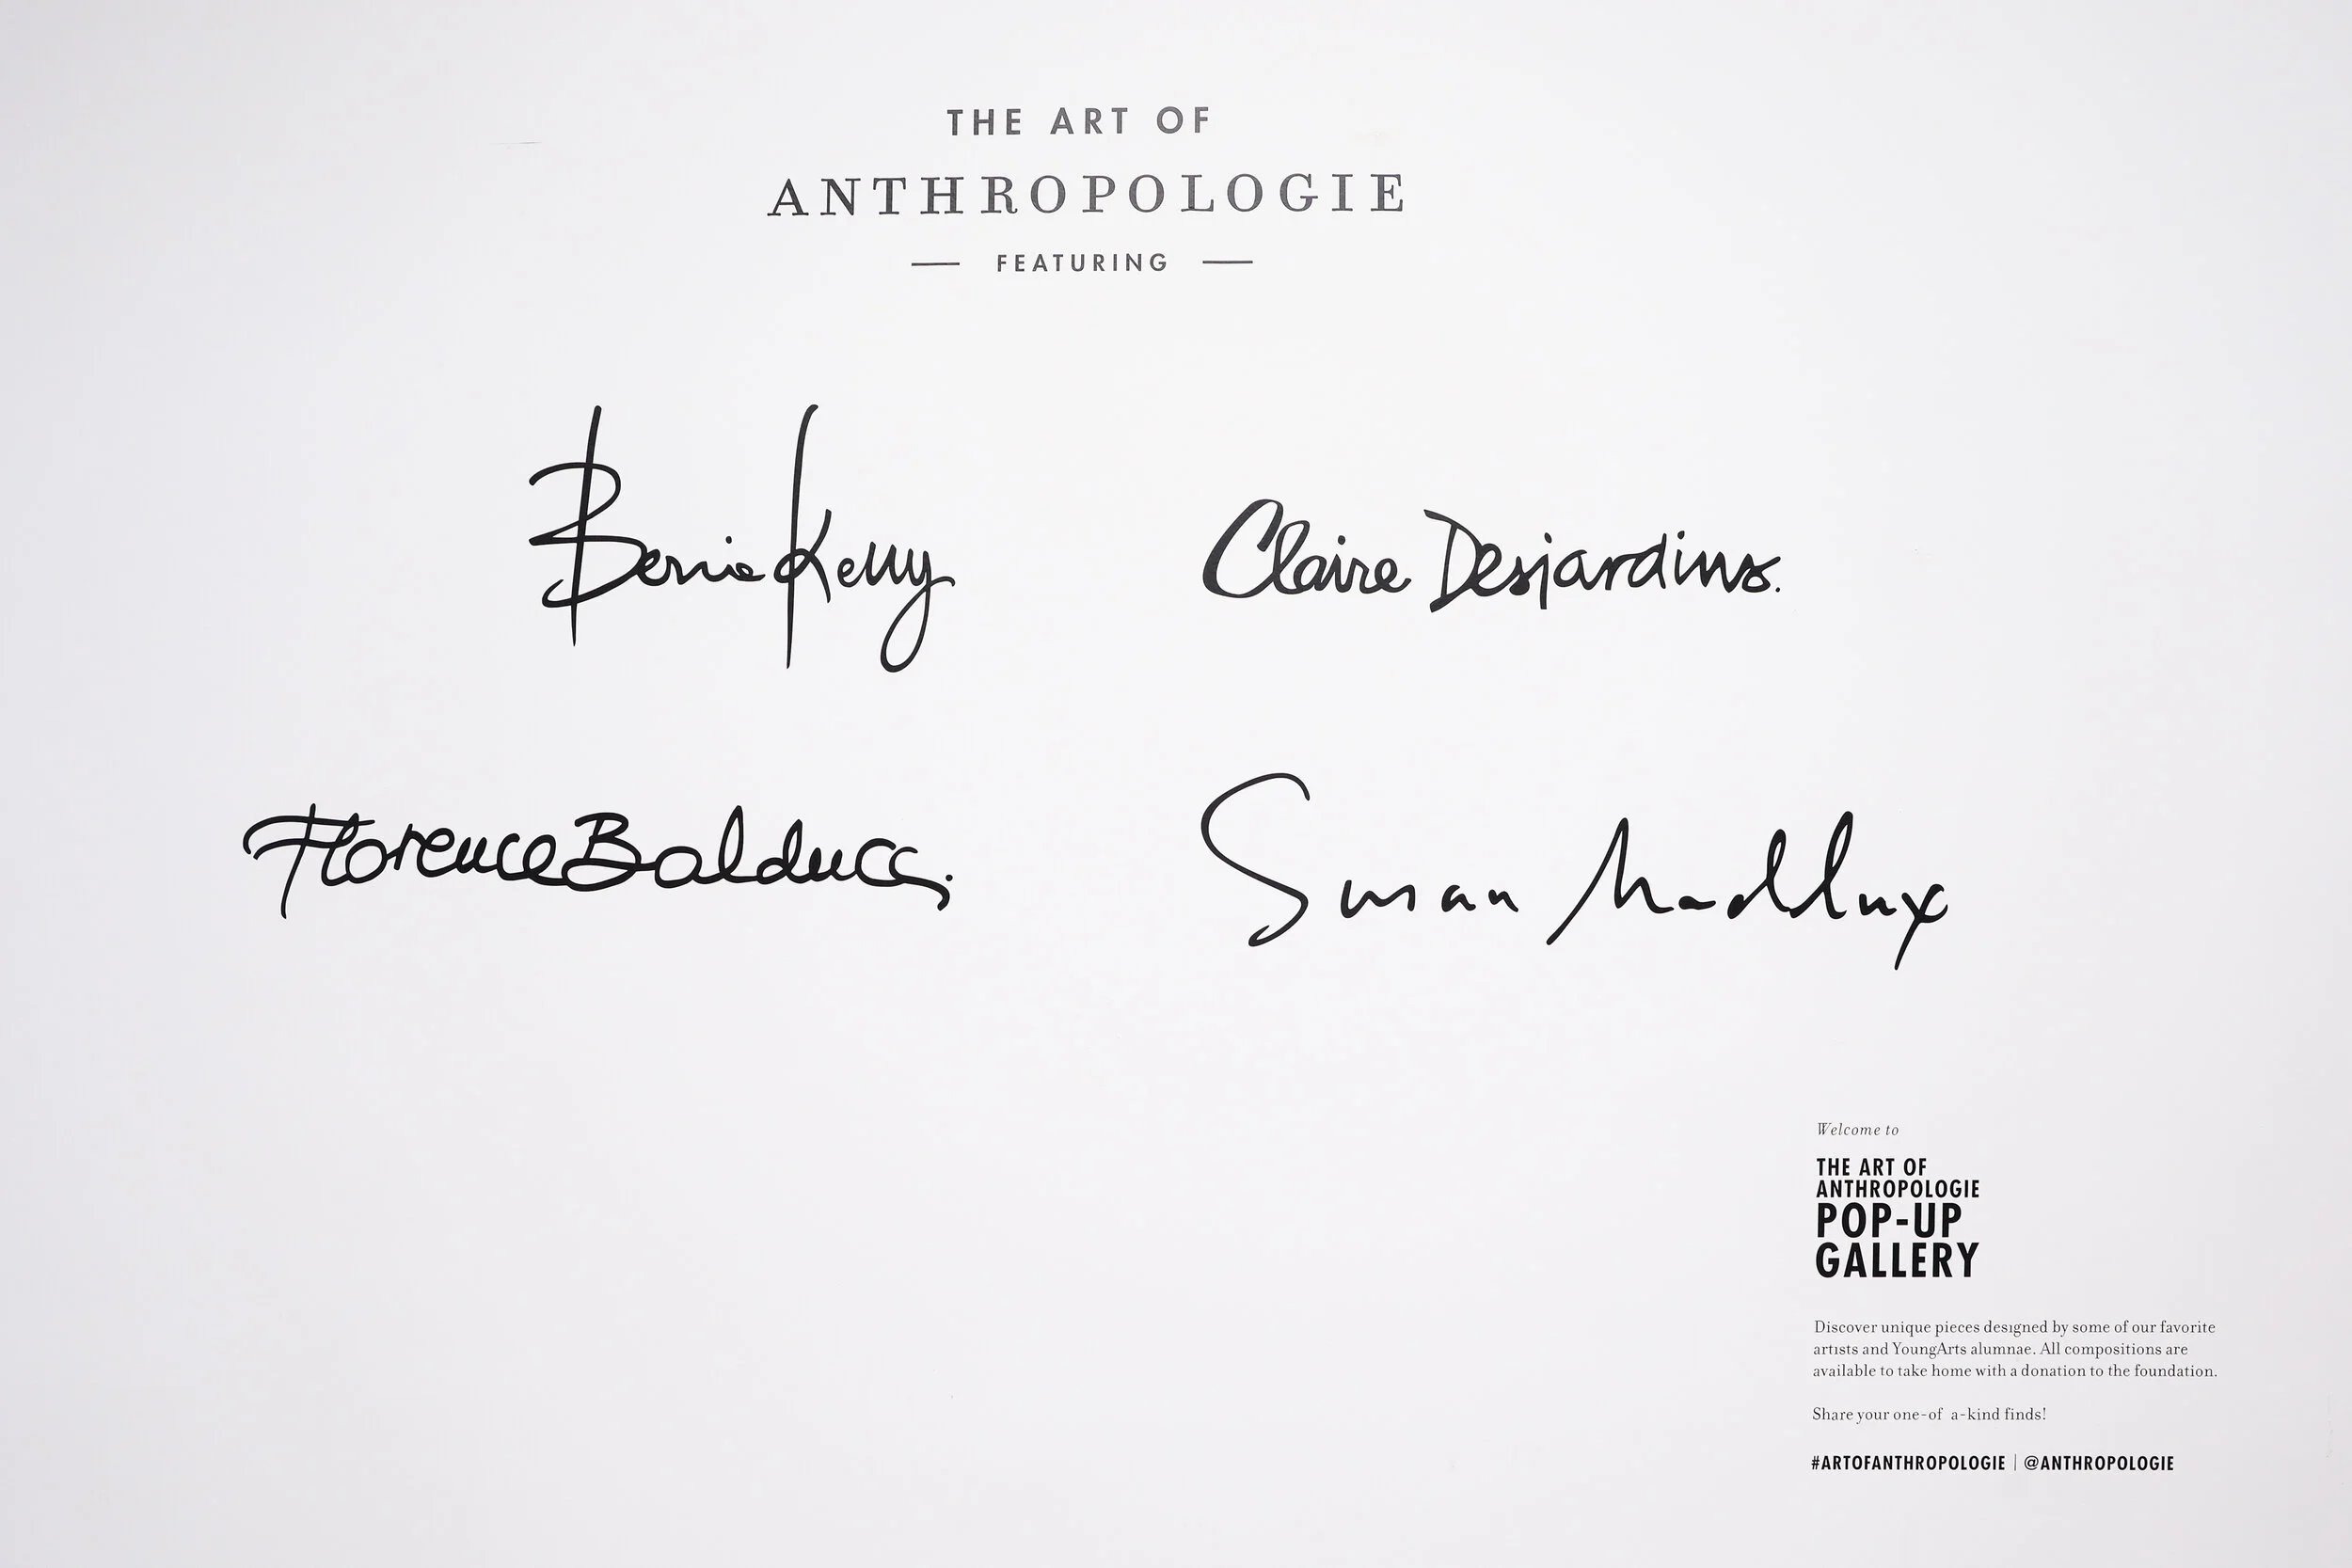 THE ART OF
ANTHROPOLOGIE
FEATURING
Bernie Kelly
Claire Desjardins.
Florence Balducci
Susan Maddux
Welcome to
THE ART OF
ANTHROPOLOGIE
POP-UP
GALLERY
Discover unique pieces designed by some of our favorite
artists and YoungArts alumnae. All compositions are
available to take home with a donation to the foundation.
Share your one-of a-kind finds!
#ARTOFANTHROPOLOGIE | @ANTHROPOLOGIE